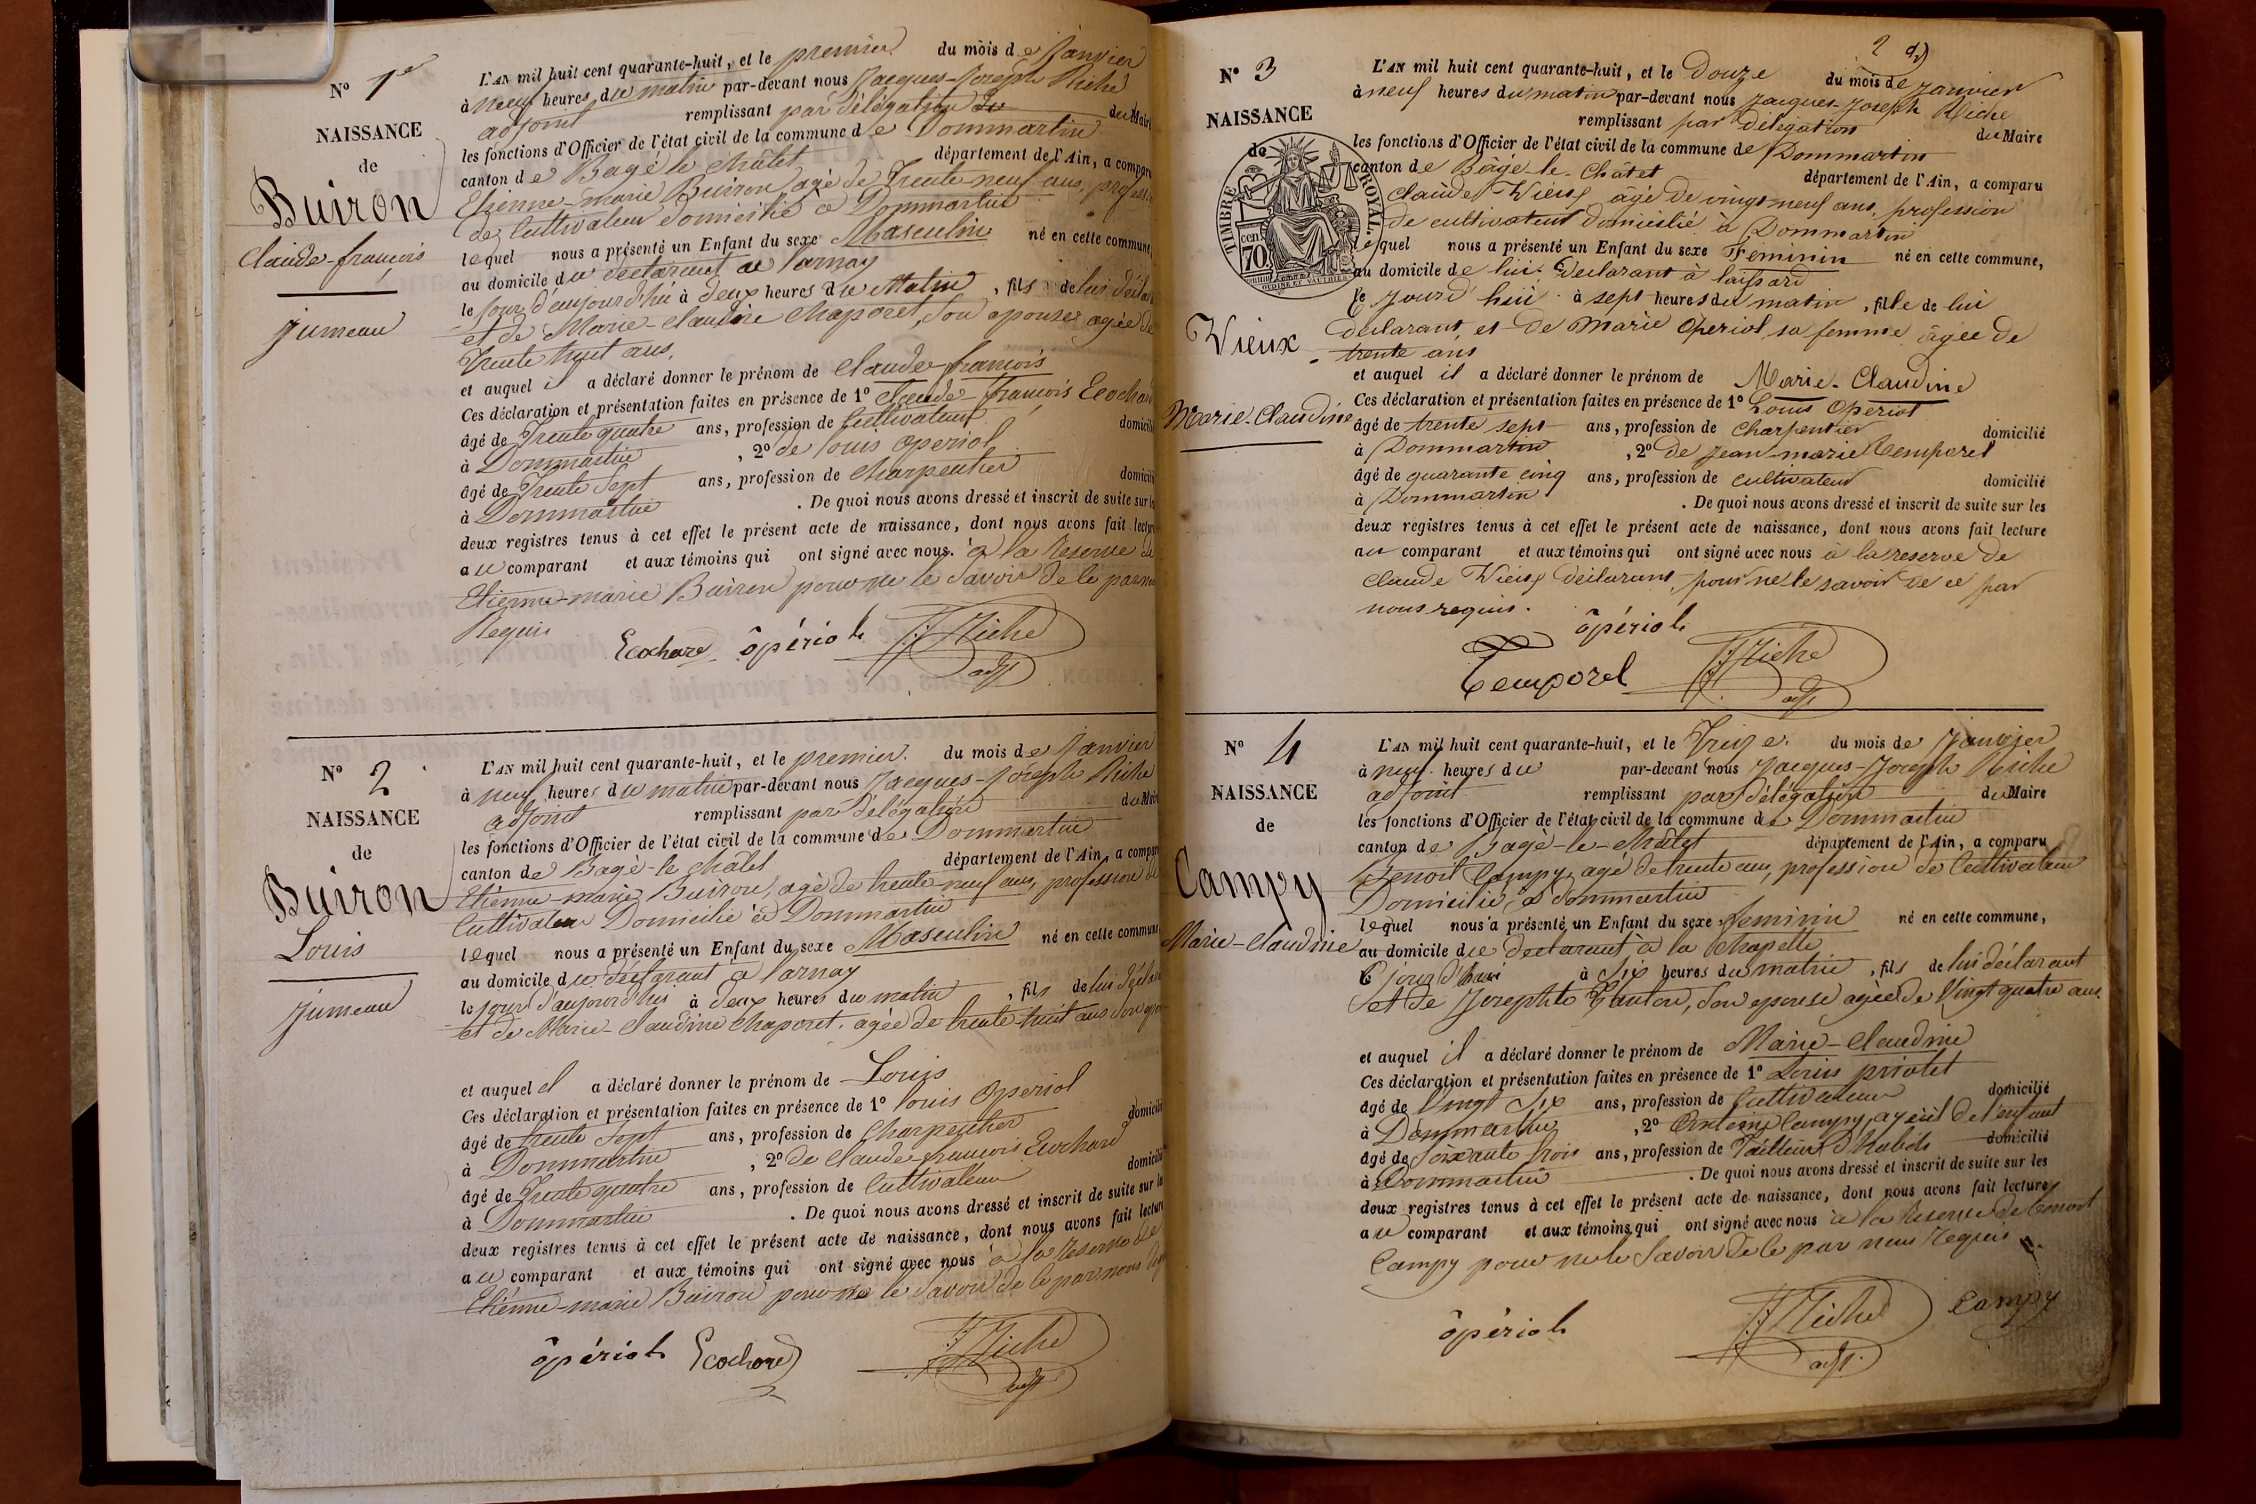 N° 1er
NAISSANCE
de
Buiron
Claude-françois
jumeau
L'AN mil huit cent quarante-huit, et le premier du mois de Janvier
à neuf heures du matin par-devant nous Jacques-Joseph Riche
adjoint remplissant par délégation du Maire
les fonctions d'Officier de l'état civil de la commune de Dommartin
canton de Bagé le châtel département de l'Ain, a comparu
Etienne-marie Buiron agé de Trente neuf ans, profession
de Cultivateur domicilié à Dommartin
lequel nous a présenté un Enfant du sexe Masculin né en cette commune,
au domicile du déclarant à
le jour d'aujourd'hui à deux heures du Matin, fils de lui
et de Marie-Claudine Chaporet, son epouse agée de
Trente huit ans,
et auquel il a déclaré donner le prénom de Claude françois
Ces déclaration et présentation faites en présence de 1° Claude-françois Ecochard
âgé de Trente quatre ans, profession de Cultivateur domicilié
à Dommartin, 2° de Louis Operiol
âgé de Trente Sept ans, profession de Charpentier domicilié
à Dommartin. De quoi nous avons dressé et inscrit de suite sur les
deux registres tenus à cet effet le présent acte de naissance, dont nous avons fait lecture
au comparant et aux témoins qui ont signé avec nous à la Reserve de
Etienne-marie Buiron pour ne le Savoir de ce par nous
Requis
Ecochard ôpériol JJ Riche
adjt
N° 2
NAISSANCE
de
Buiron
Louis
jumeau
L'AN mil huit cent quarante-huit, et le premier. du mois de Janvier
à neuf heures du matin par-devant nous Jacques-Joseph Riche
adjoint remplissant par délégation du Maire
les fonctions d'Officier de l'état civil de la commune de Dommartin
canton de Bagé-le châtel département de l'Ain, a comparu
Etienne marie Buiron, agé de trente neuf ans, profession de
Cultivateur Domicilié à Dommartin
lequel nous a présenté un Enfant du sexe Masculin né en cette commune
au domicile du déclarant à
le jour d'aujourd'hui à deux heures du matin, fils de lui
et de Marie-Claudine Chaporet. agée de trente-huit ans Son
et auquel il a déclaré donner le prénom de Louis
Ces déclaration et présentation faites en présence de 1° Louis Operiol
âgé de trente Sept ans, profession de Charpentier domicilié
à Dommartin, 2° de Claude-françois Ecochard
âgé de Trente quatre ans, profession de Cultivateur domicilié
à Dommartin. De quoi nous avons dressé et inscrit de suite sur les
deux registres tenus à cet effet le présent acte de naissance, dont nous avons fait lecture
au comparant et aux témoins qui ont signé avec nous à la Reserve de
Etienne-marie Buiron pour ne le Savoir de ce par nous
ôpériol Ecochard JJ Riche
adjt
2
N° 3
NAISSANCE
de
TIMBRE ROYAL.
cen 70
Vieux
Marie-Claudine
L'AN mil huit cent quarante-huit, et le Douze du mois de Janvier
à neuf heures du matin par-devant nous Jacques-Joseph Riche
remplissant par délégation du Maire
les fonctions d'Officier de l'état civil de la commune de Dommartin
canton de Bâgé-le-Châtel département de l'Ain, a comparu
Claude Vieux âgé de vingt neuf ans, profession
de cultivateur domicilié à Dommartin
lequel nous a présenté un Enfant du sexe Feminin né en cette commune,
au domicile de lui declarant à
le jourd'hui à sept heures du matin, fille de lui
declarant, et de Marie Operiol, sa femme âgée de
trente ans
et auquel il a déclaré donner le prénom de Marie-Claudine
Ces déclaration et présentation faites en présence de 1° Louis Operiol
âgé de trente sept ans, profession de Charpentier domicilié
à Dommartin, 2° de Jean-marie Temporel
âgé de quarante cinq ans, profession de cultivateur domicilié
à Dommartin. De quoi nous avons dressé et inscrit de suite sur les
deux registres tenus à cet effet le présent acte de naissance, dont nous avons fait lecture
au comparant et aux témoins qui ont signé avec nous à la reserve de
Claude Vieux declarant pour ne le savoir de ce par
nous requis.
ôpériol
Temporel JJ Riche
adjt
N° 4
NAISSANCE
de
Campy
Marie-Claudine
L'AN mil huit cent quarante-huit, et le Treize. du mois de Janvier
à neuf heures du par-devant nous Jacques-Joseph Riche
adjoint remplissant par délégation du Maire
les fonctions d'Officier de l'état civil de la commune de Dommartin
canton de Bagé-le-Châtel département de l'Ain, a comparu
Benoit Campy, agé de trente ans, profession de Cultivateur
Domicilié à Dommartin
lequel nous a présenté un Enfant du sexe feminin né en cette commune,
au domicile du declarant à la Chapelle
ce jourd'hui à Six heures du matin, fils de lui déclarant
et de Josephte, son epouse agée de Vingt quatre ans.
et auquel il a déclaré donner le prénom de Marie-Claudine
Ces déclaration et présentation faites en présence de 1° Louis
âgé de Vingt Six ans, profession de Cultivateur domicilié
à Dommartin, 2° Antoine Campy, ayeul de l'enfant
âgé de Soixante trois ans, profession de Tailleur D'habits domicilié
à Dommartin. De quoi nous avons dressé et inscrit de suite sur les
deux registres tenus à cet effet le présent acte de naissance, dont nous avons fait lecture
au comparant et aux témoins qui ont signé avec nous à la Reserve de Benoit
Campy pour ne le Savoir de ce par nous Requis
ôpériol JJ Riche Campy
adjt.